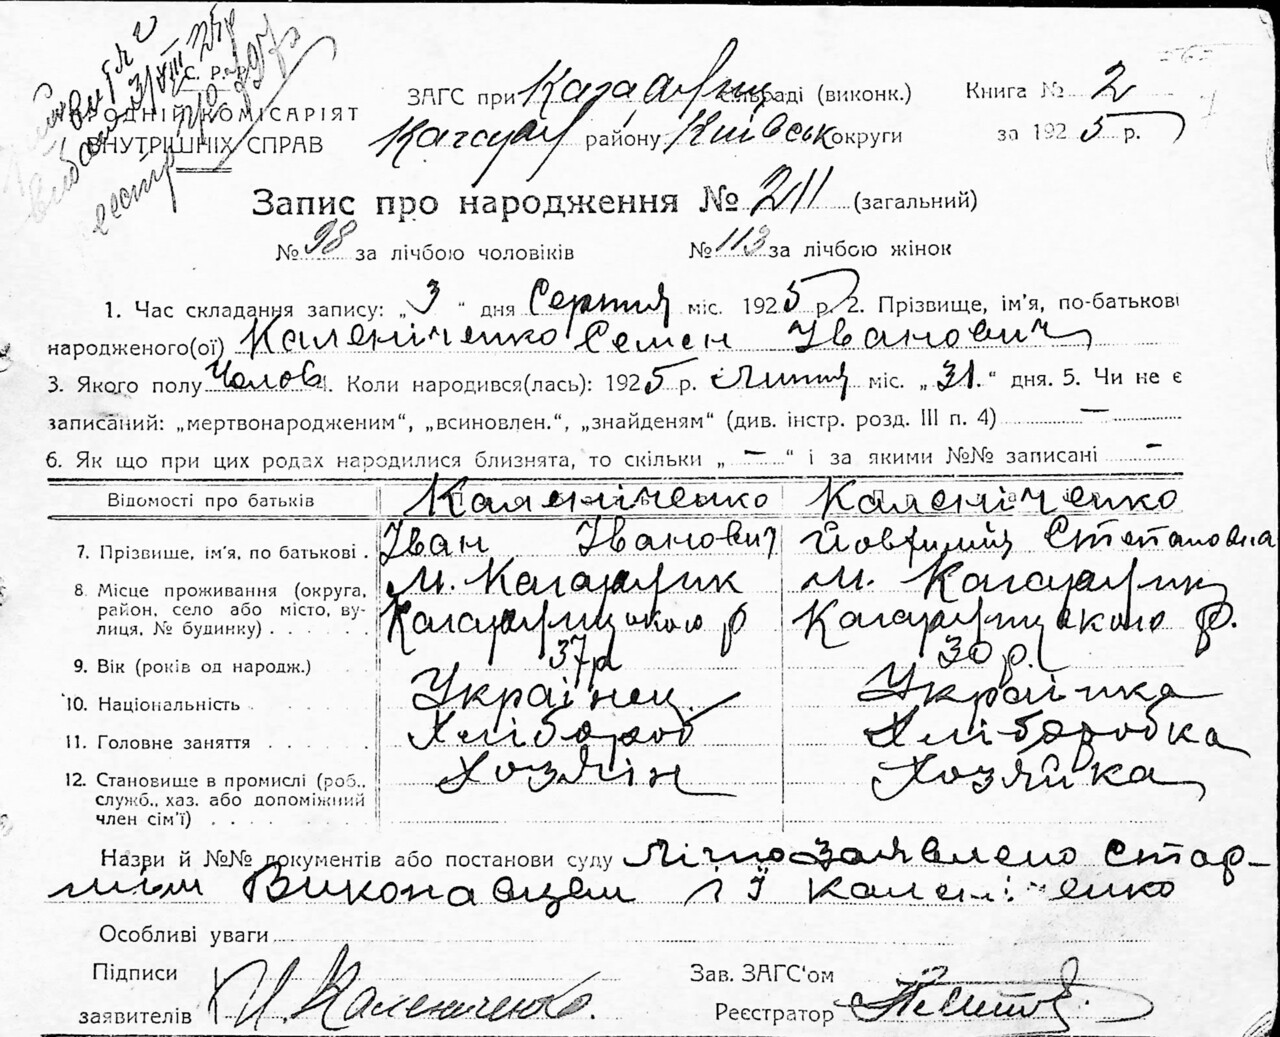 С. Р. Р.
НАРОДНІЙ КОМІСАРІЯТ
ВНУТРІШНІХ СПРАВ
ЗАГС при Кагарлиц сільраді (виконк.)
Книга № 2
Кагарл району Київськ округи
за 1925 р.
Запис про народження № 211 (загальний)
№ 98 за лічбою чоловіків № 113 за лічбою жінок
1. Час складання запису: „3“ дня Серпня міс. 1925 р. 2. Прізвище, ім’я, по-батькові
народженого(ої) Каленіченко Семен Іванович
3. Якого полу Чолов 4. Коли народився(лась): 1925 р. Липня міс. „31“ дня. 5. Чи не є
записаний: „мертвонародженим“, „всиновлен.“, „знайденям“ (див. інстр. розд. III п. 4) —
6. Як що при цих родах народилися близнята, то скільки „ — “ і за якими №№ записані —
Відомості про батьків
Каленіченко Каленіченко
7. Прізвище, ім’я, по батькові . Іван Іванович Степановна
8. Місце проживання (округа, м. Кагарлик м. Кагарлик
район, село або місто, ву-
лиця, № будинку) . . . . . . Кагарлицького р Кагарлицького р.
9. Вік (років од народж.) 37 р 30 р.
10. Національність . Українец Українка
11. Головне заняття . . . . . . Хлібороб Хлібородка
12. Становище в промислі (роб., Хозяін Хозяйка
служб., хаз. або допоміжний
член сім’ї) . . . .
Назви й №№ документів або постанови суду Лічно заявлено Стар-
шим Виконавцем і Каленіченко
Особливі уваги
Підписи
заявителів И. Калениченко.
Зав. ЗАГС‘ом
Реєстратор